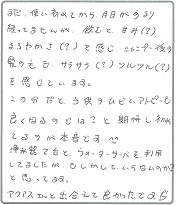 まだ、使い初めてから、月日があまり
経ってませんが、飲むと、甘み(?)
まろやかさ(?)を感じ、シャワー後の
髪の毛も、サラサラ(?)ツルツル(?)
を感じています。
この分だと、子供のひどいアトピーも
良くなるのでは?と期待し初め
てるのが本音です
浄水器で言うと、ウォーターサーバーを利用
してましたが、もしかして、いらないのかな?
と思ってます。
アクアスユと出会えて良かったです